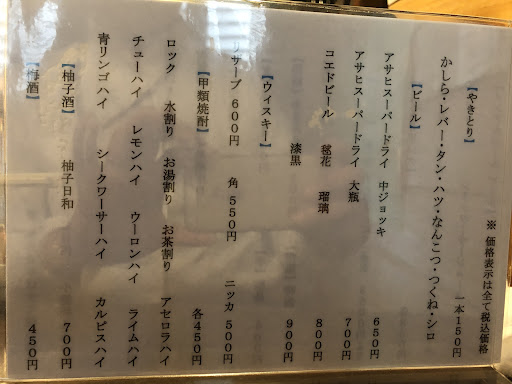 ※ 価格表示は全て税込価格
【やきとり】 一本150円
かしら・レバー・タン・ハツ・なんこつ・つくね・シロ
【ビール】
アサヒスーパードライ 中ジョッキ 650円
アサヒスーパードライ 大瓶 700円
コエドビール 毬花 瑠璃 800円
漆黒 900円
【ウィスキー】
リザーブ 600円 角 550円 ニッカ 500円
【甲類焼酎】 各450円
ロック 水割り お湯割り お茶割り アセロラハイ
チューハイ レモンハイ ウーロンハイ ライムハイ
青リンゴハイ シークワーサーハイ カルピスハイ
【柚子酒】 柚子日和 700円
【梅酒】 450円